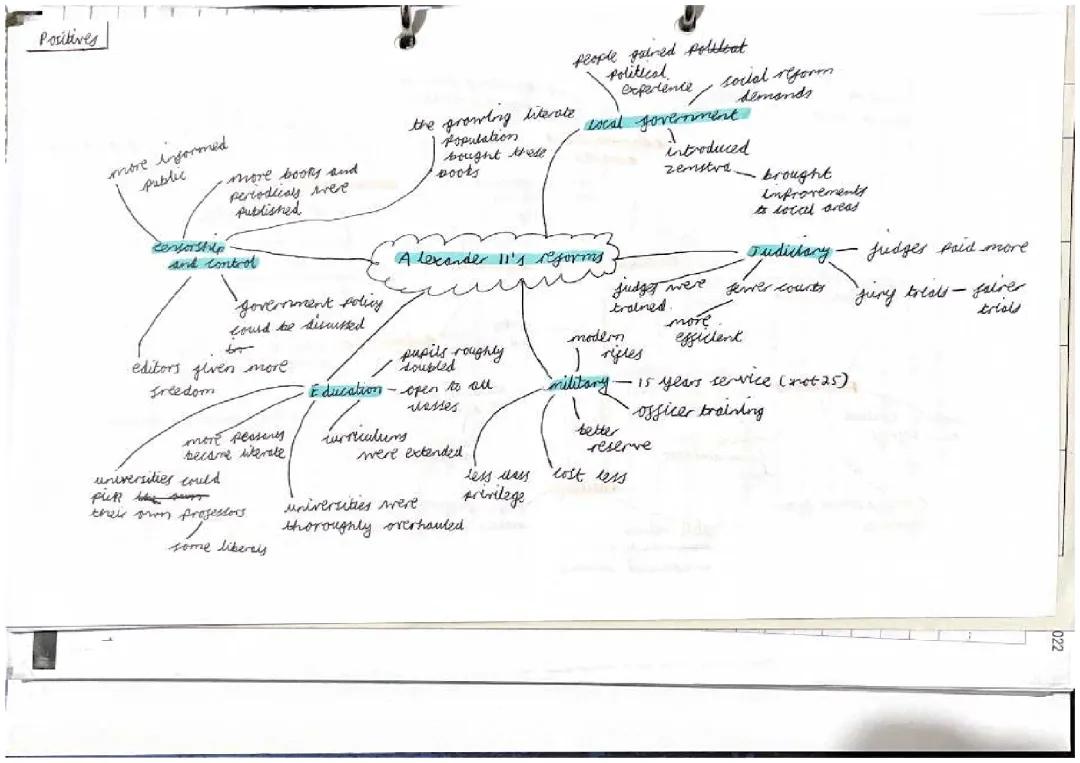 Positives
people gained political
political
experience
social reform
demands
local government
introduced
zemstva
brought
improvements
to local areas
the growing literate
population
bought these
books
more informed
public
more books and
periodicals were
published
censorship
and control
government policy
could be discussed
editors given more
freedom
Alexander II's reforms
Judiciary
judges paid more
judges were
trained
fewer courts
more
efficient
jury trials - fairer
trials
Education
pupils roughly
doubled
open to all
classes
curriculums
were extended
more peasants
became literate
universities could
pick
their own professors
some liberals
universities were
thoroughly overhauled
military
modern
rifles
15 years service (not 25)
officer training
better
reserve
cost less
less class
privilege
022